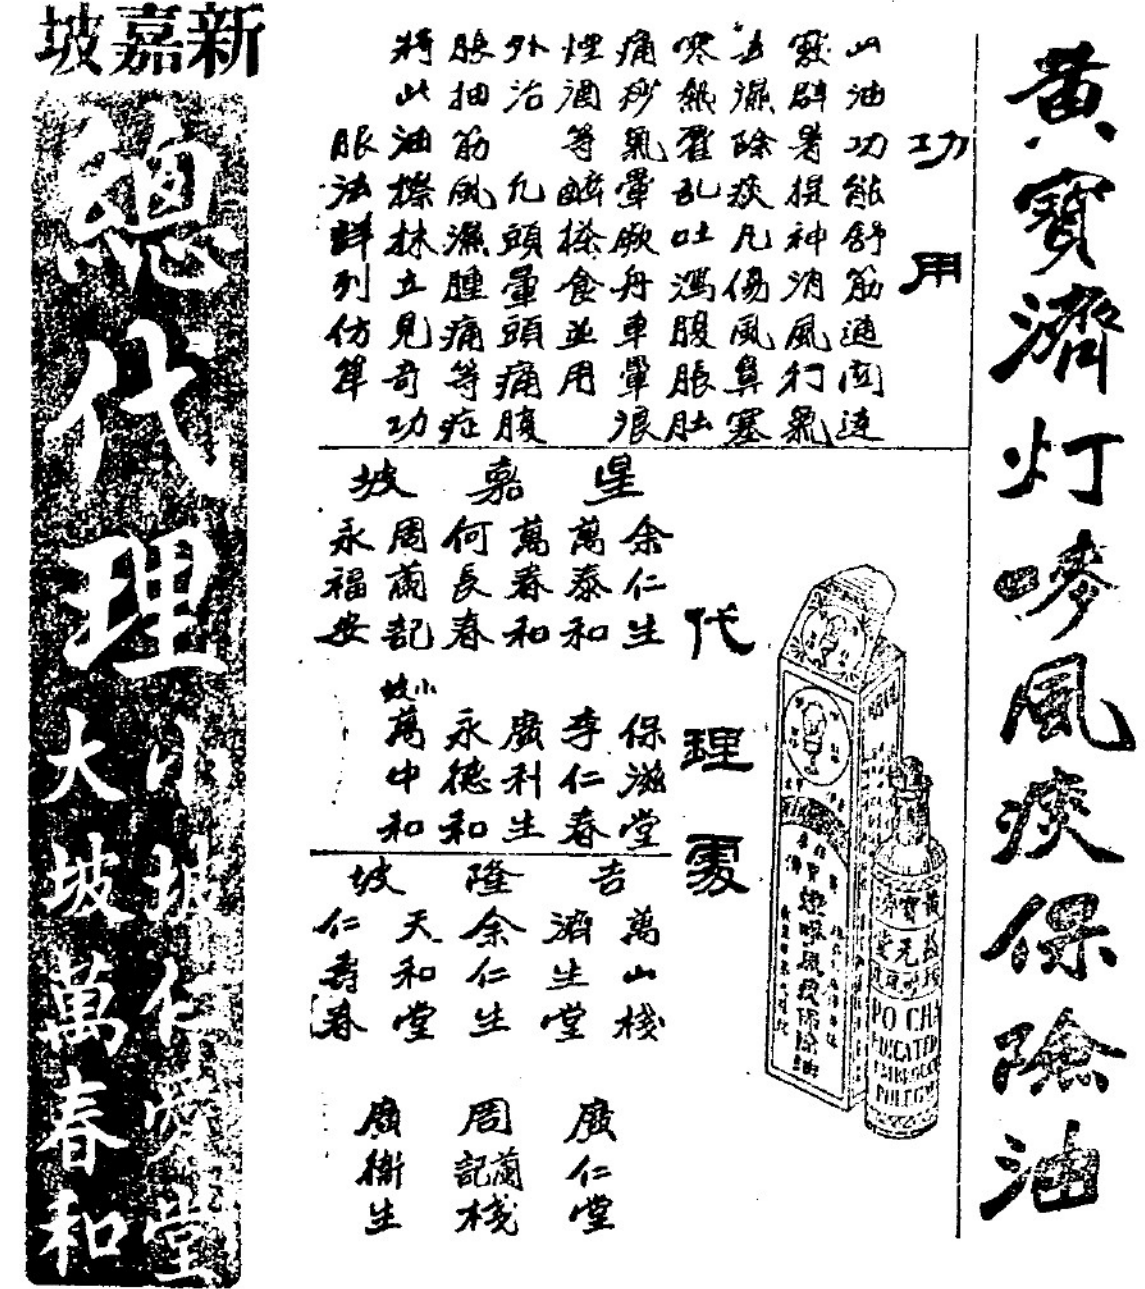 黃寶濟灯嘜風痰保險油
功用
此油功能舒筋通関達
竅辟暑提神消風行氣
去濕除痰凡傷風鼻塞
寒熱霍乱吐瀉腹脹肚
痛痧氣暈厥舟車暈浪
煙酒等醉搽食並用
外治 凡頭暈頭痛腹
脹抽筋風濕腫痛等症
將此油搽抹立見奇功
服法詳列仿單
代理處
星嘉坡
余仁生
萬泰和
萬春和
何長春
周蘭記
永福安
保滋堂
李仁春
廣利生
永德和
小坡
萬中和
吉隆坡
萬山棧
濟生堂
余仁生
天和堂
仁壽春
廣仁堂
周蘭記棧
廣衛生
黃寶濟
PO CHA
新嘉坡
總代理
小坡仁愛堂
大坡萬春和